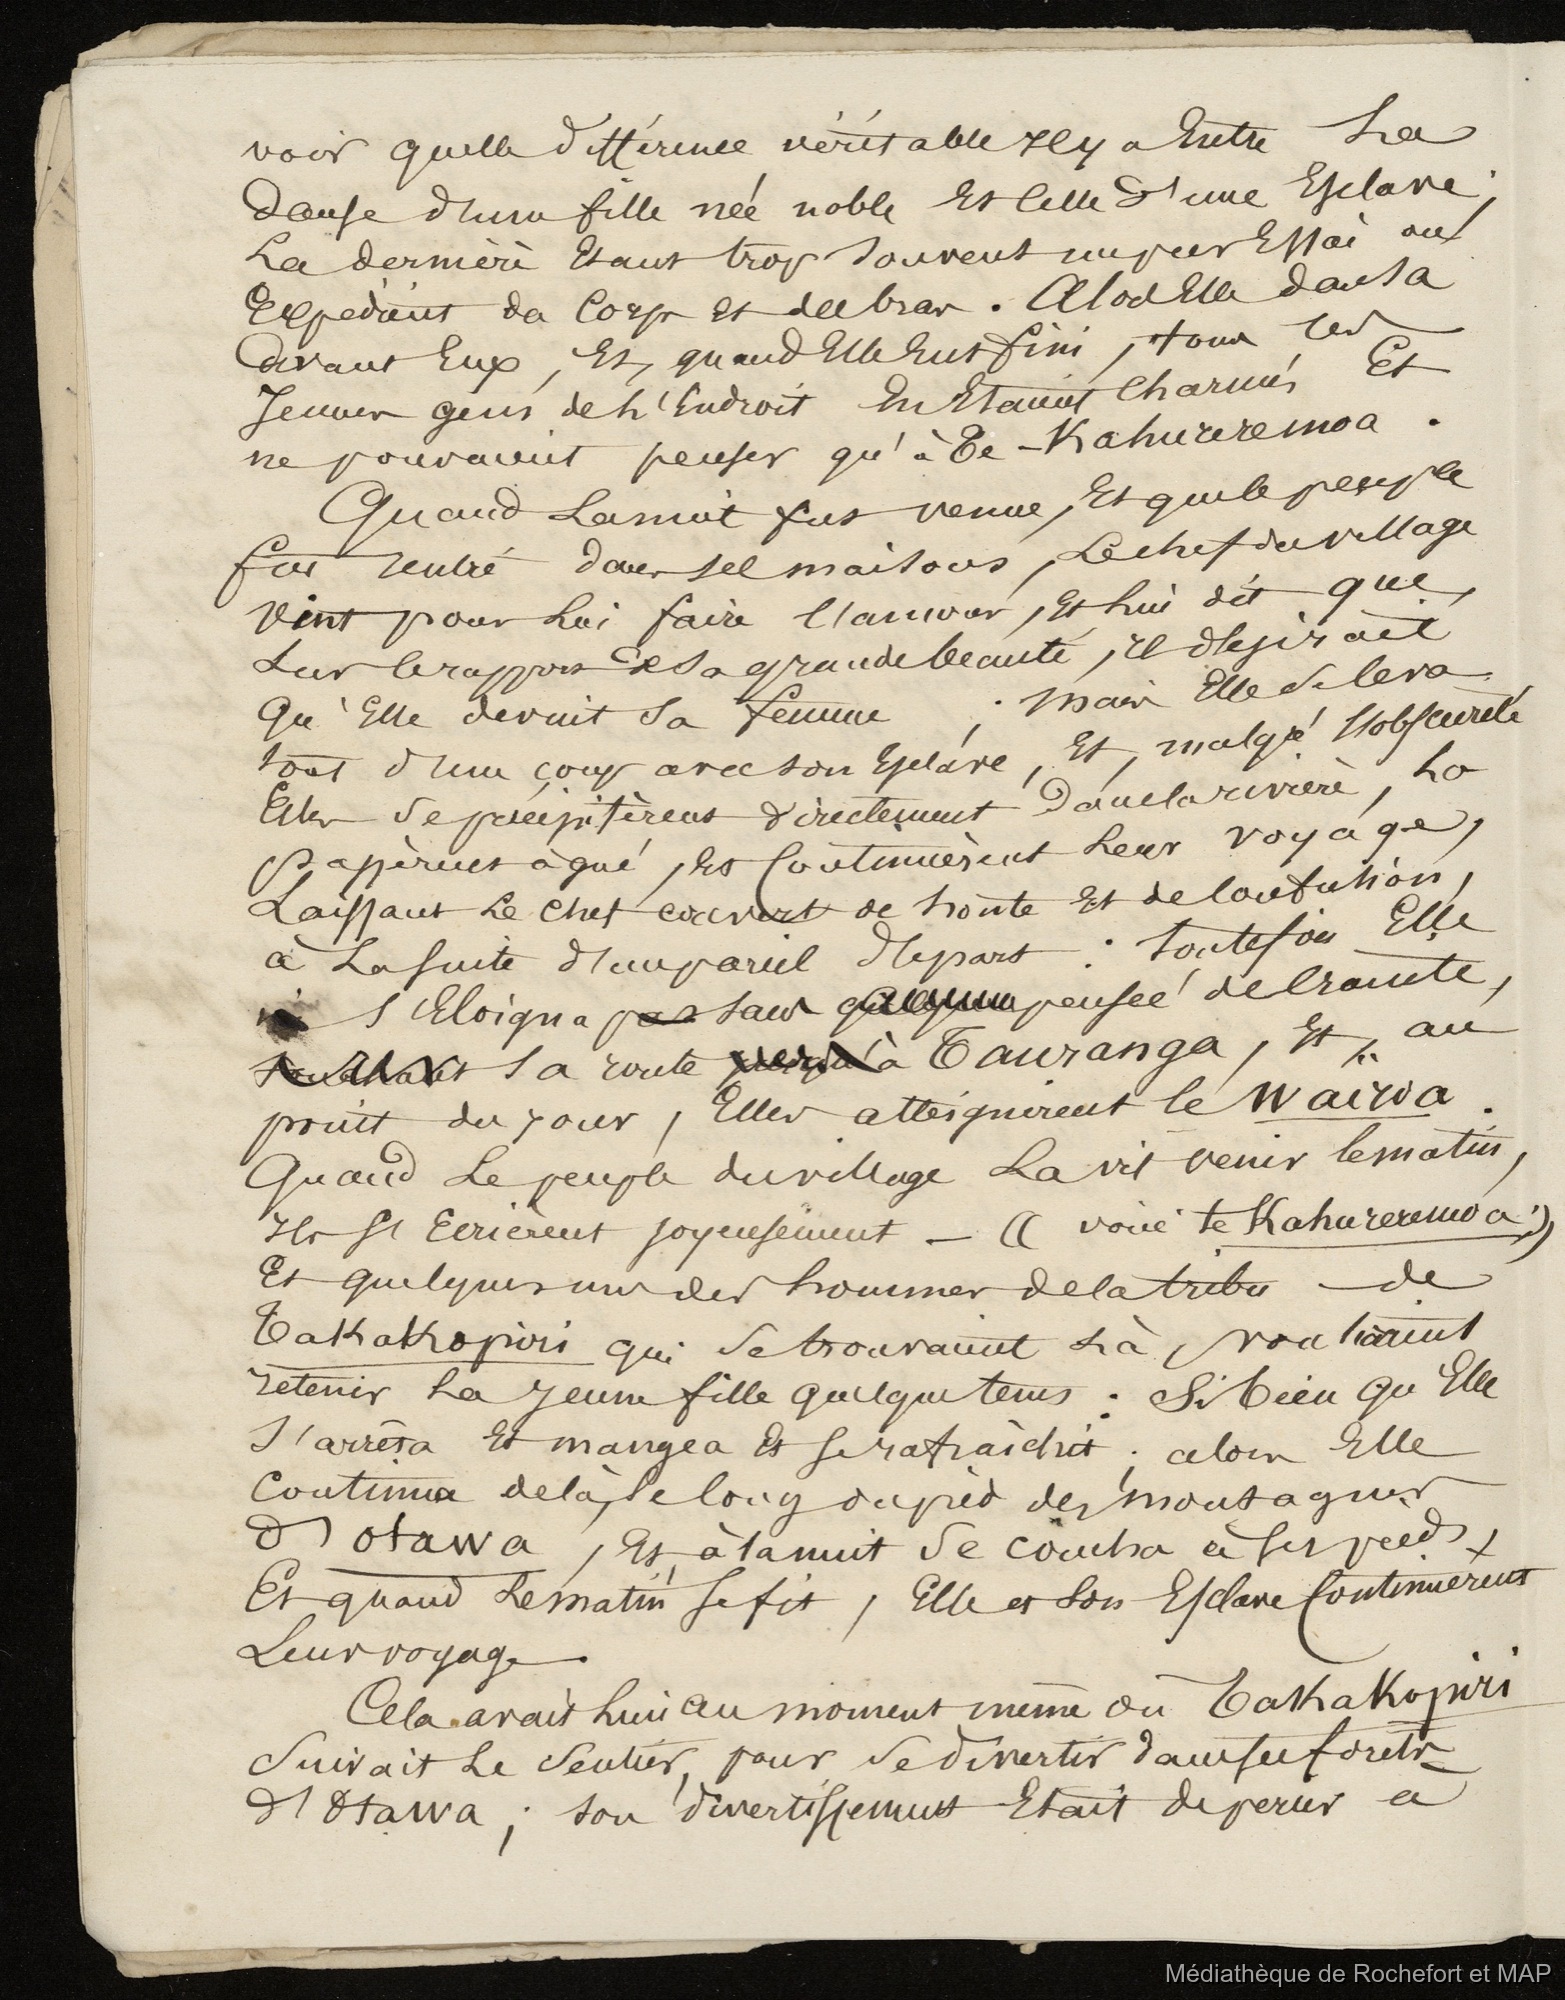 voir quelle différence véritable il y a Entre La
Danse d'une fille née noble Et Celle d'une Esclave ;
La dernière Etant trop souvent un pur Essai ou
Expédient du Corps Et des bras . Alors Elle dansa
devant Eux , Et, quand Elle Eut fini , tous les
Jeunes gens de L'Endroit En Etaient Charmés Et
ne pouvaient penser qu'à Te-Kahureremoa .
Quand La nuit fut venue , Et que le peuple
fut rentré dans ses maisons , Le chef du village
Vint pour Lui faire l'amour , Et Lui dit que,
sur le rapport de Sa grande beauté , il désirait
Qu'Elle devint Sa femme ; mais Elle se leva
tout d'un coup avec son Esclave , Et, malgré l'obscurité
Elles se précipitèrent directement Dans la rivière , La
Passèrent à gué , Et Continuèrent Leur voyage ,
Laissant Le Chef couvert de honte Et de Confusion ,
à La suite d'un pareil départ : toutefois Elle
s'Eloigna pas sans quelque pensée de Crainte ,
Sa route à Tauranga , Et, au
point du jour , Elles atteignirent le Wairoa .
Quand Le peuple du village La vit venir le matin ,
ils s'Ecrièrent joyeusement — (( voici te Kahureremoa ! ))
Et quelques uns des hommes de la tribu de
Takakopiri qui se trouvaient Là , voulaient
retenir La jeune fille quelque tems : Si bien qu'Elle
s'arrêta Et mangea Et se rafraichit ; alors Elle
Continua de là, Le long du pied des montagnes
d'Otawa , Et à la nuit Se coucha à Ses pieds,
Et quand Le matin Se fit , Elle et Son Esclave Continuèrent
Leur voyage .
Cela avait Lieu au moment même où Takakopiri
Suivait Le Sentier, pour se divertir dans ses forêts
d'Otawa ; son divertissement Etait de percer à
Médiathèque de Rochefort et MAP